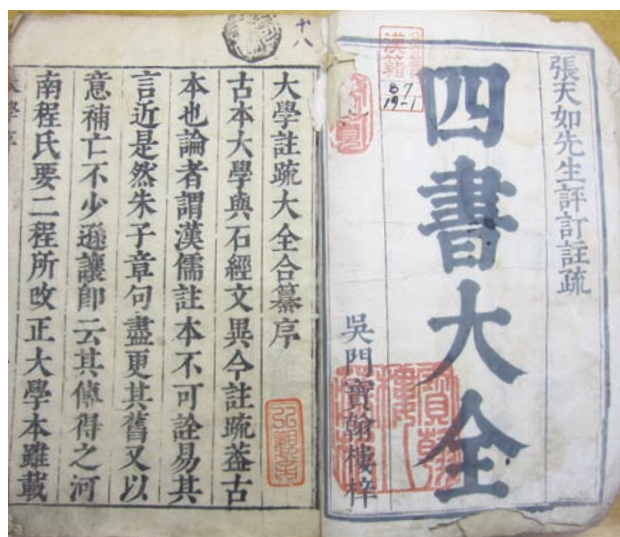 張天如先生評訂註疏
四書大全
吳門寶翰樓梓
漢籍
87
19-1
十八
大學註疏大全合纂序
古本大學與石經文異今註疏葢古
本也論者謂漢儒註本不可詮易其
言近是然朱子章句盡更其舊又以
意補亡不少遜讓卽云其傳得之河
南程氏要二程所改正大學本雖載